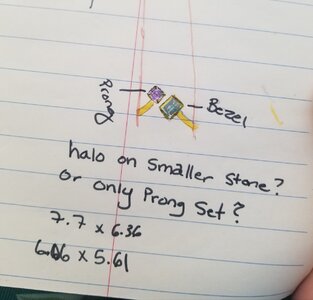 Prong
Bezel
halo on smaller stone?
or only Prong Set?
7.7 x 6.36
6.06 x 5.61